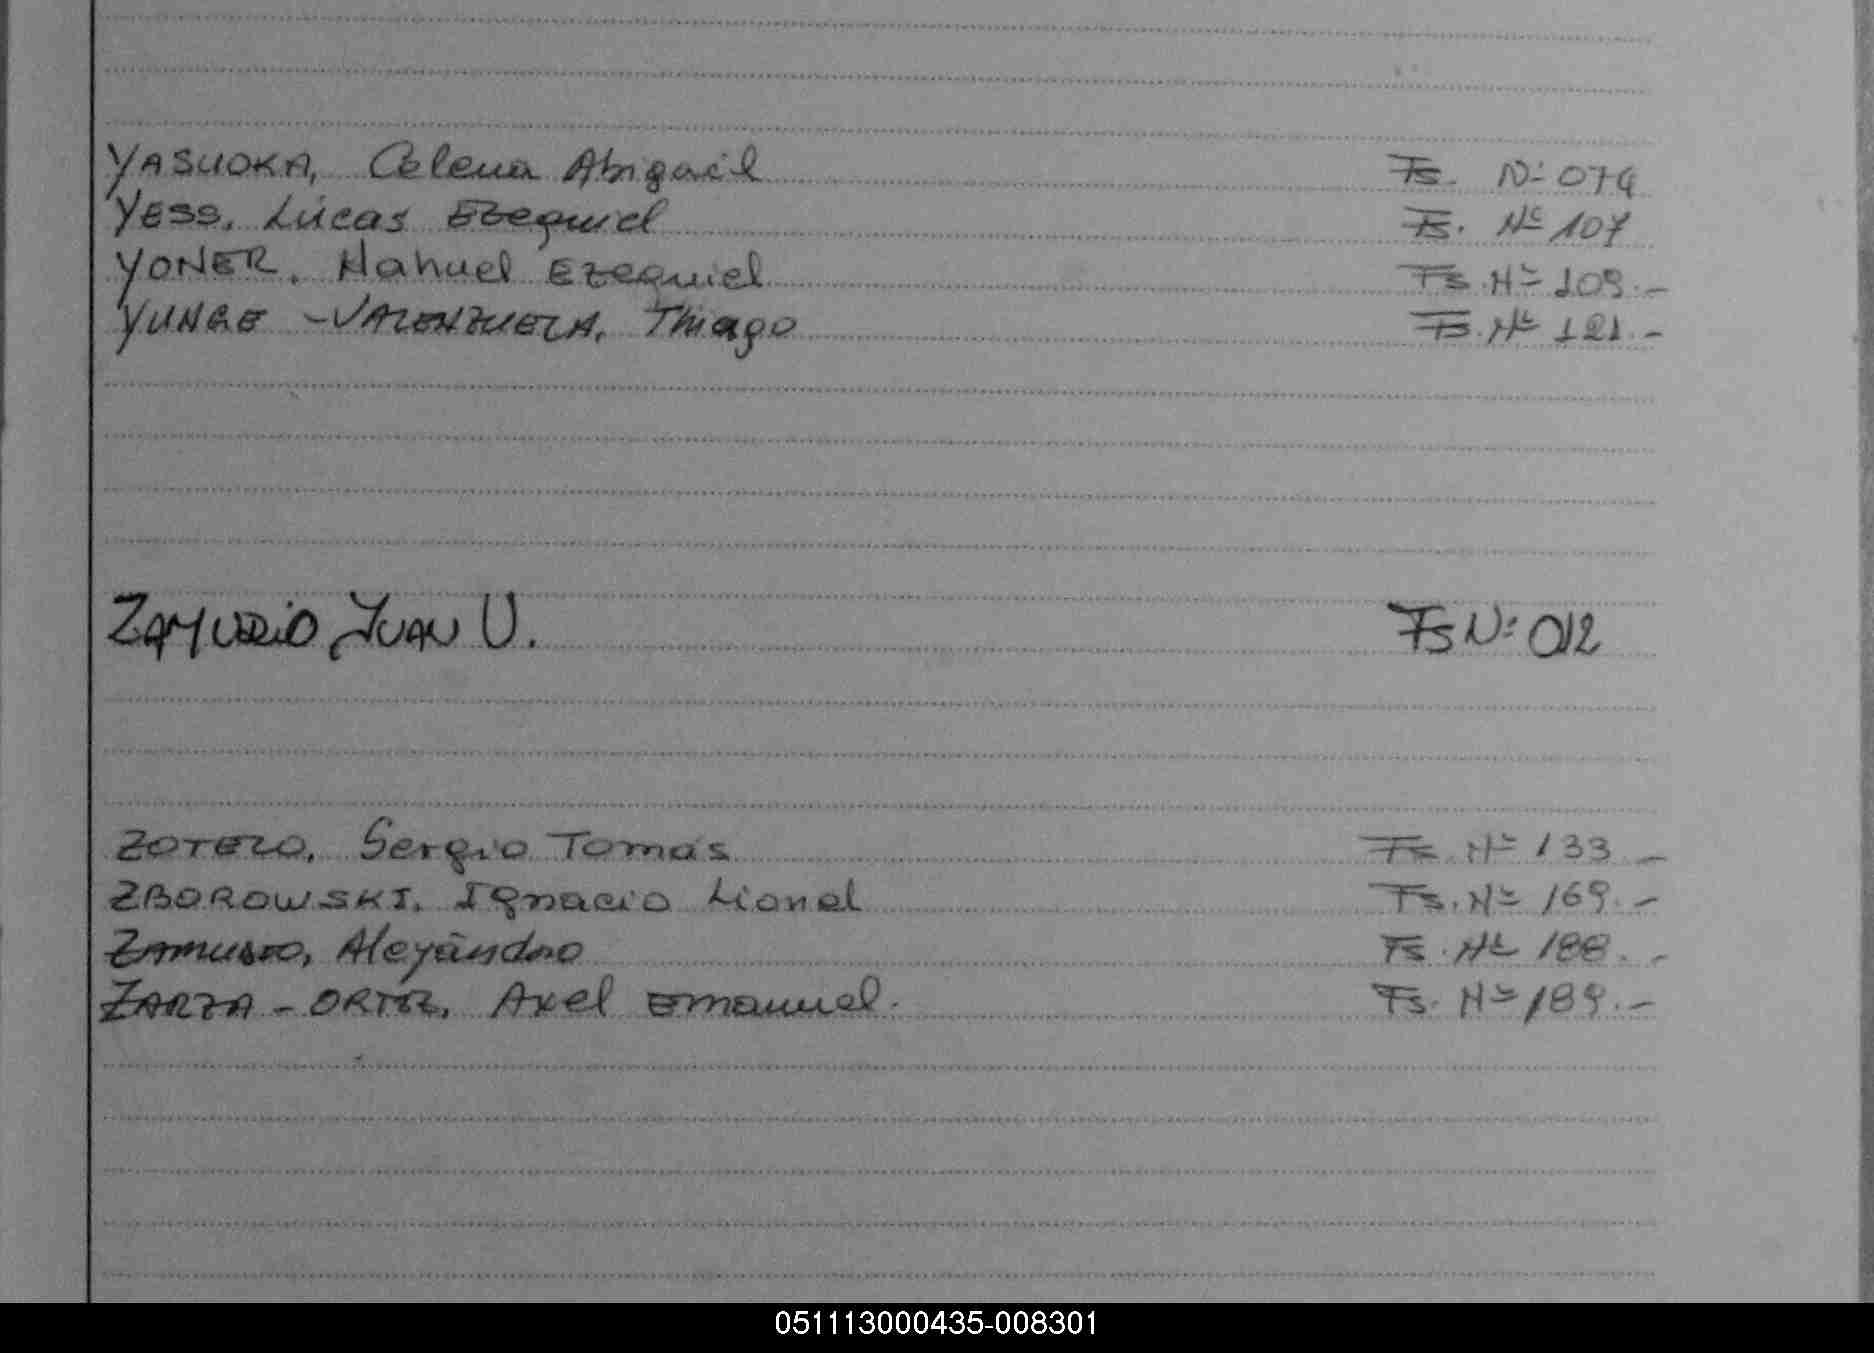 YASUOKA, Celena Abigail Fs. Nº 074
YESS, Lucas Ezequiel Fs. Nº 107
YONER, Nahuel Ezequiel Fs. Nº 109.-
YUNGE - VALENZUELA, Thiago Fs. Nº 121.-
ZAMUDIO JUAN U. Fs Nº 012
ZOTELO, Sergio Tomás Fs. Nº 133.-
ZBOROWSKI, Ignacio Lionel Fs. Nº 169.-
ZAMUDIO, Aleyandro Fs. Nº 188.-
ZARZA - ORTIZ, Axel Emanuel. Fs. Nº 189.-
051113000435-008301